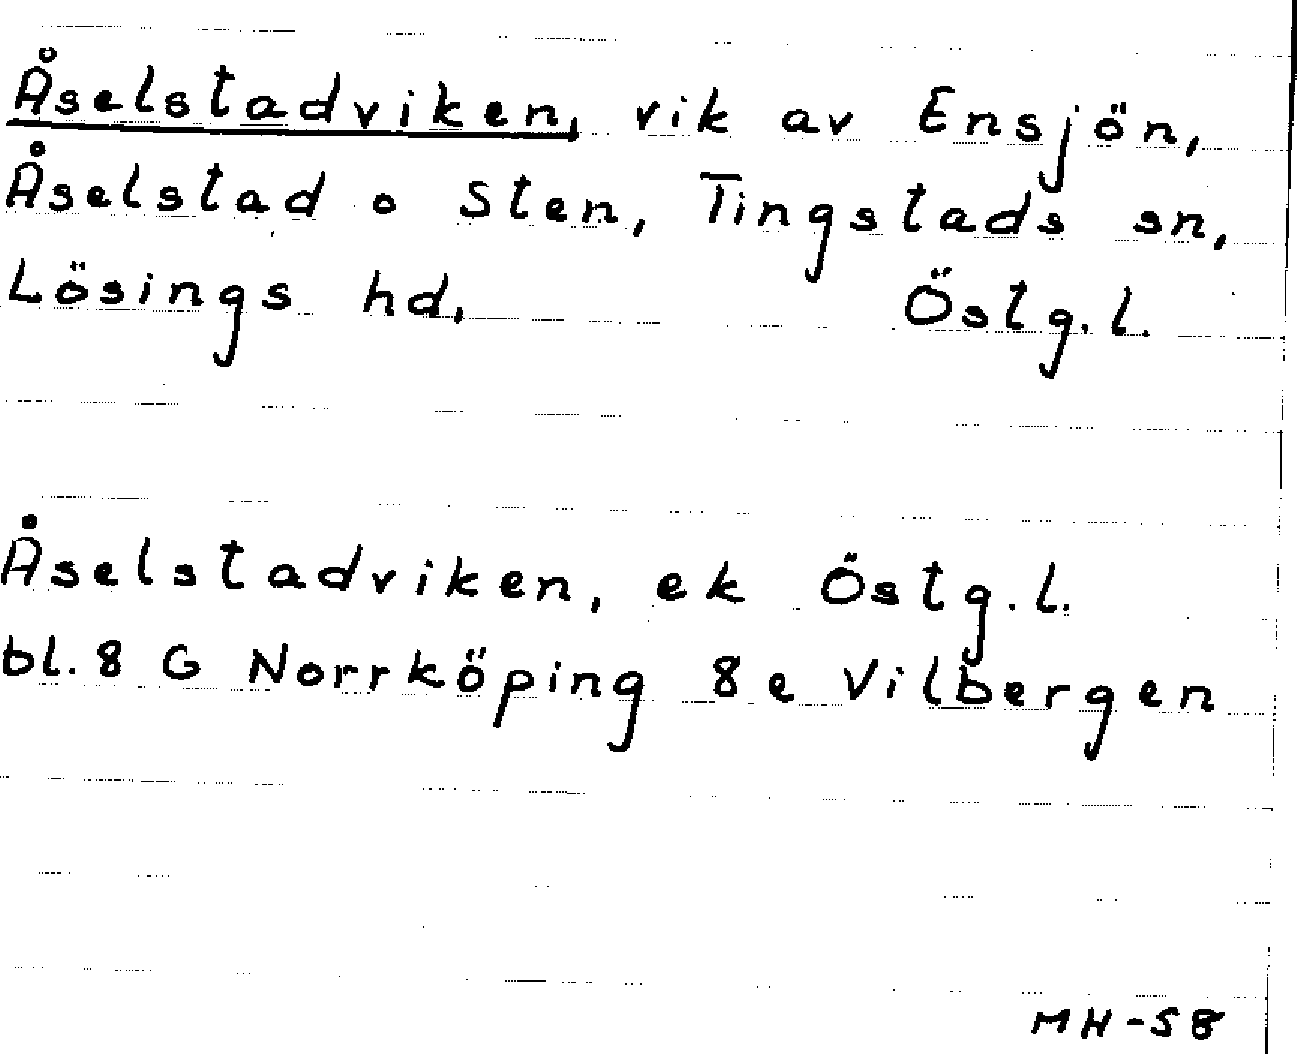 Åselstadviken, vik av Ensjön,
Åselstad o Sten, Tingstads sn,
Lösings hd, Östg.l.
Åselstadviken, ek Östg.l.
bl. 8 G Norrköping 8e Vilbergen
MH-58